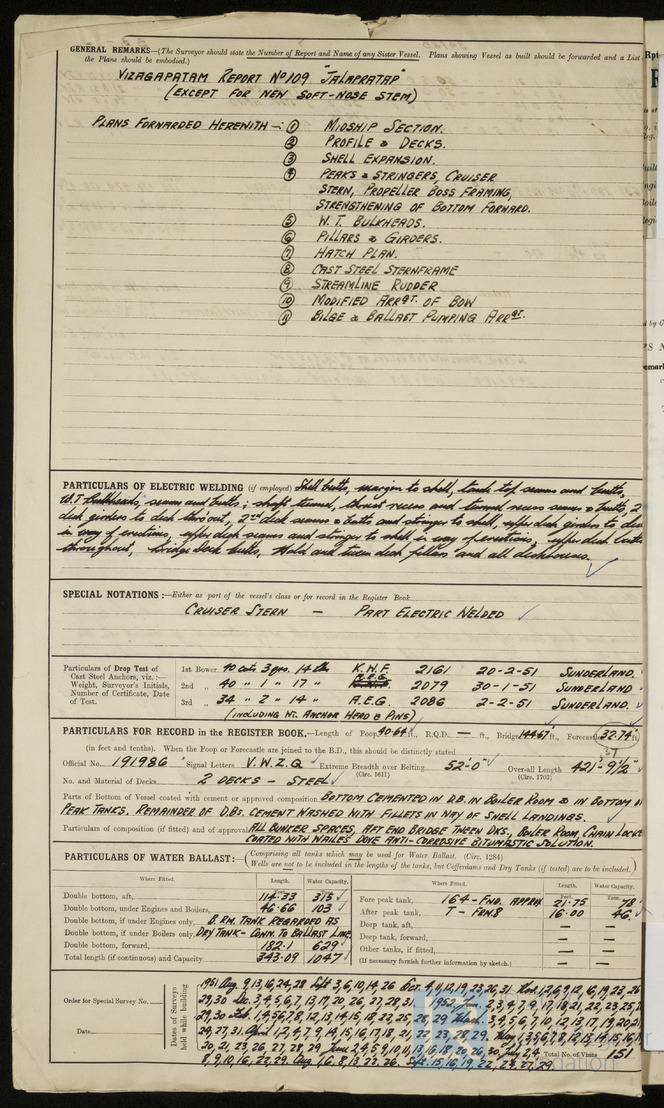 GENERAL REMARKS—(The Surveyor should state the Number of Report and Name of any Sister Vessel. Plans showing Vessel as built should be forwarded and a List
the Plans should be embodied.)
VIZAGAPATAM REPORT No 109 "JALAPRATAP"
(EXCEPT FOR NEW SOFT-NOSE STEM)
PLANS FORWARDED HEREWITH :- ① MIDSHIP SECTION.
② PROFILE & DECKS.
③ SHELL EXPANSION.
④ PEAKS & STRINGERS, CRUISER
STERN, PROPELLER BOSS FRAMING,
STRENGTHENING OF BOTTOM FORWARD.
⑤ W.T. BULKHEADS.
⑥ PILLARS & GIRDERS.
⑦ HATCH PLAN.
⑧ CAST STEEL STERNFRAME
⑨ STREAMLINE RUDDER
⑩ MODIFIED ARRGT. OF BOW
⑪ BILGE & BALLAST PUMPING ARRGT.
PARTICULARS OF ELECTRIC WELDING (if employed) Shell butts, margin to shell, tank top seams and butts,
W.T. Bulkheads, seams and butts; shaft tunnel, thrust recess and tunnel recess seams & butts, 2
deck girders to deck thro'out, 2nd deck seams & butts and stringer to shell, upper deck girders to
in way of erections, upper deck seams and stringer to shell in way of erections, upper deck butts
throughout, bridge deck butts, Hold and tween deck pillars and all deckhouses.
SPECIAL NOTATIONS:—Either as part of the vessel's class or for record in the Register Book
CRUISER STERN — PART ELECTRIC WELDED
Particulars of Drop Test of
Cast Steel Anchors, viz. :—
Weight, Surveyor's Initials,
Number of Certificate, Date
of Test.
1st Bower 40 cwts 3 qrs. 14 lbs K.H.F. 2161 20-2-51 SUNDERLAND.
2nd „ 40 " 1 " 17 " A.E.G. 2079 30-1-51 SUNDERLAND
3rd „ 34 " 2 " 14 " A.E.G. 2086 2-2-51 SUNDERLAND.
(INCLUDING WT. ANCHOR HEAD & PINS)
PARTICULARS FOR RECORD in the REGISTER BOOK.—Length of Poop 40.64 ft., R.Q.D. — ft., Bridge 144.67 ft., Forecastle 32.74 ft.
37
(in feet and tenths). When the Poop or Forecastle are joined to the B.D., this should be distinctly stated
Official No. 191986 Signal Letters V.W.Z.Q Extreme Breadth over Belting 52'-0" Over-all Length 421'-9½"
(Circ. 1611) (Circ. 1703)
No. and Material of Decks 2 DECKS - STEEL
Parts of Bottom of Vessel coated with cement or approved composition BOTTOM CEMENTED IN D.B. IN BOILER ROOM & IN BOTTOM
PEAK TANKS. REMAINDER OF D.Bs. CEMENT WASHED WITH FILLETS IN WAY OF SHELL LANDINGS.
Particulars of composition (if fitted) and of approval ALL BUNKER SPACES, AFT END BRIDGE TWEEN DKS., BOILER ROOM, CHAIN LOCKE
COATED WITH WAILES DOVE ANTI-CORROSIVE BITUMASTIC SOLUTION.
PARTICULARS OF WATER BALLAST:—(Comprising all tanks which may be used for Water Ballast. (Circ. 1284)
Wells are not to be included in the lengths of the tanks, but Cofferdams and Dry Tanks (if tested) are to be included.)
Where Fitted. Length. Water Capacity. Where Fitted. Length. Water Capacity.
Double bottom, aft, 114.33 315
Double bottom, under Engines and Boilers, 46.66 103
Double bottom, if under Engines only, B. RM. TANK REGARDED AS
Double bottom, if under Boilers only, DRY TANK - CONN. TO BALLAST LINE
Double bottom, forward, 182.1 629
Total length (if continuous) and Capacity 343.09 1047
Fore peak tank, 164 - FWD. APPROX 21.75 78
After peak tank, 7 - FRM8 16.00 46
Deep tank, aft, — —
Deep tank, forward, — —
Other tanks, if fitted, — —
(If necessary furnish further information by sketch.)
Order for Special Survey No.
Date
Dates of Surveys
held while building
1951 Aug. 9, 13, 16, 24, 28 Sept 3, 6, 10, 14, 26 Oct. 4, 11, 12, 19, 23, 26, 31
Total No. of Visits 151